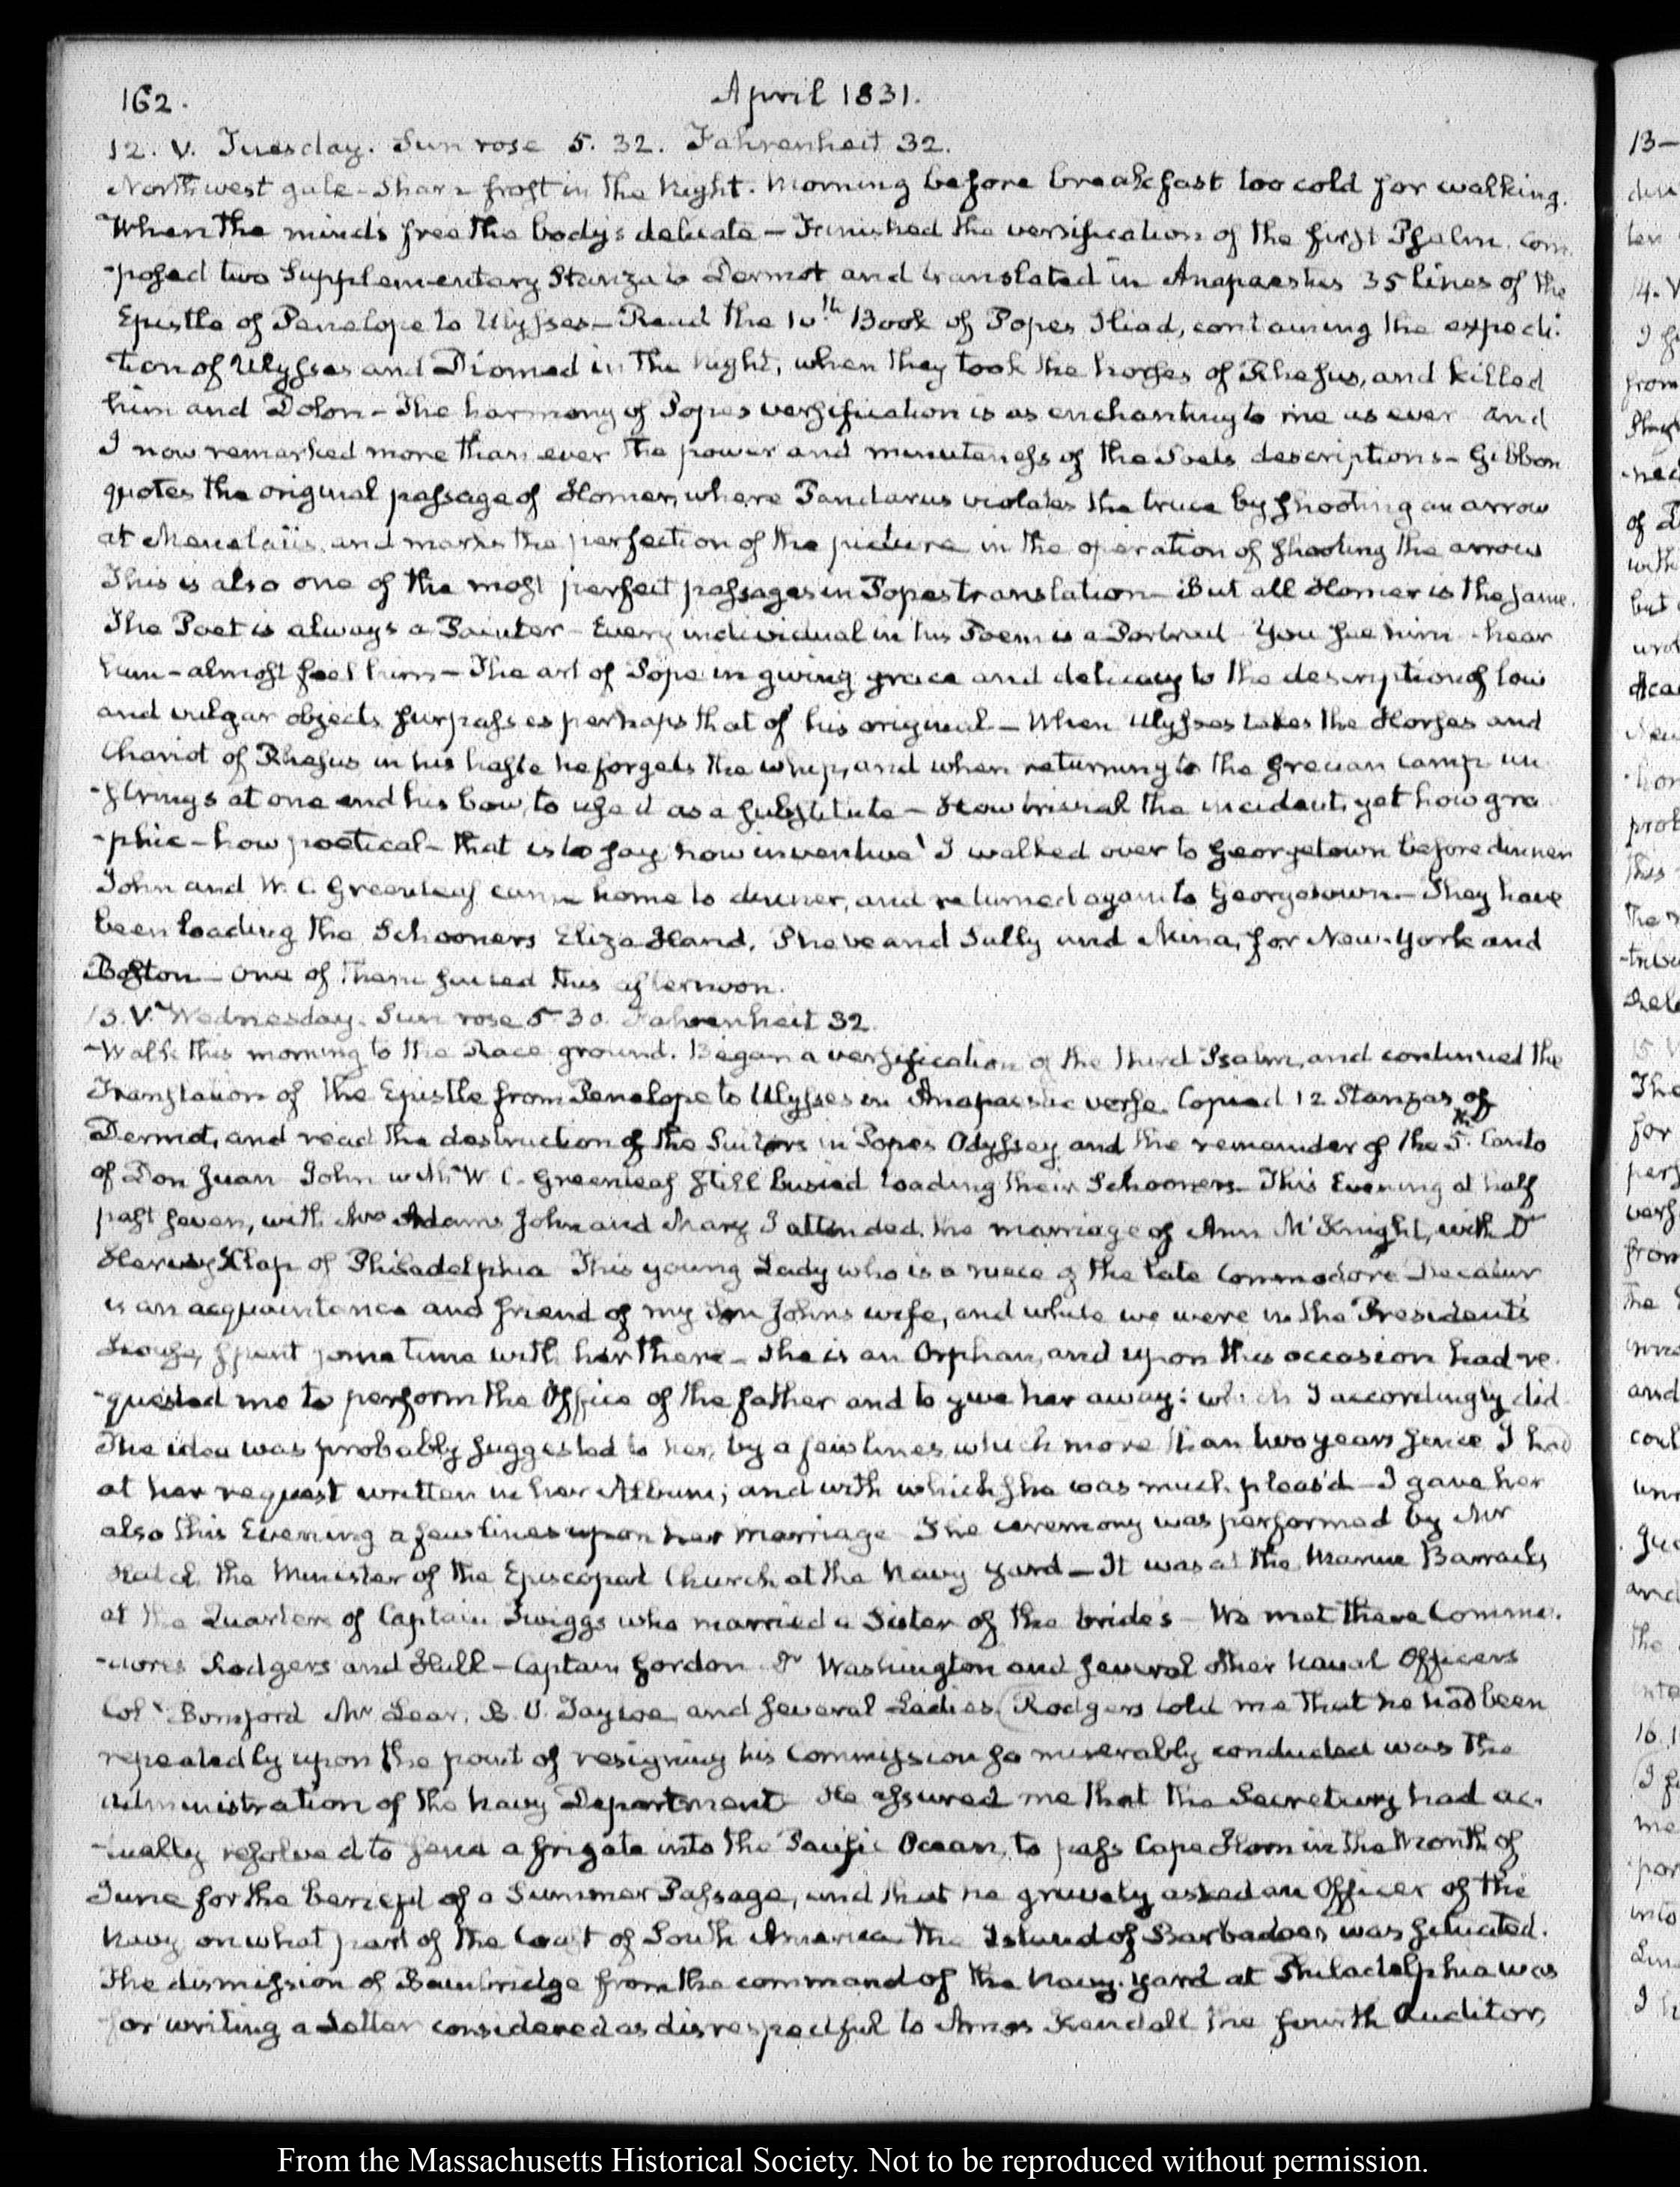 162.
April 1831.
12. V. Tuesday. Sun rose 5. 32. Fahrenheit 32.
Northwest gale - Sharp frost in the Night. Morning before breakfast too cold for walking.
When the mind's free the body's delicate — Finished the versification of the first Psalm. Com
-posed two Supplementary Stanza's to Dermot and translated in Anapaestics 35 lines of the
Epistle of Penelope to Ulysses — Read the 10th Book of Popes Iliad, containing the expedi-
tion of Ulysses and Diomed in the Night, when they took the horses of Rhesus, and killed
him and Dolon — The harmony of Popes versification is as enchanting to me as ever and
I now remarked more than ever the power and minuteness of the Poets descriptions — Gibbon
quotes the original passage of Homer, where Pandarus violates the truce by shooting an arrow
at Menelaüs, and marks the perfection of the picture in the operation of shooting the arrow
This is also one of the most perfect passages in Popes translation — But all Homer is the same.
The Poet is always a Painter — Every individual in his Poem is a Portrait You see him - hear
him - almost feel him — The art of Pope in giving grace and delicacy to the description of low
and vulgar objects surpasses perhaps that of his original — When Ulysses takes the Horses and
Chariot of Rhesus in his haste he forgets the whip, and when returning to the Grecian Camp un
-strings at one end his bow, to use it as a substitute — How trivial the incident, yet how gra
-phic - how poetical - that is to say how inventive! I walked over to Georgetown before dinner
John and W. C. Greenleaf came home to dinner, and returned again to Georgetown — They have
been loading the Schooners Eliza Hand, Phebe and Sally and Mina, for New-York and
Boston — one of them sailed this afternoon.
13. V. Wednesday. Sun rose 5. 30. Fahrenheit 32.
Walk this morning to the Race ground. Began a versification of the third Psalm, and continued the
Translation of the Epistle from Penelope to Ulysses in Anapaestic verse. Copied 12 Stanzas of
Dermot, and read the destruction of the Suitors in Popes Odyssey and the remainder of the 5th Canto
of Don Juan John with W C. Greenleaf still busied loading their Schooners — This Evening at half
past seven, with Mrs Adams John and Mary I attended the marriage of Ann McKnight, with Dr
Harvey Klap of Philadelphia This young Lady who is a niece of the late Commodore Decatur
is an acquaintance and friend of my Son Johns wife, and while we were in the President's
House, spent some time with her there — She is an Orphan, and upon this occasion had re-
-quested me to perform the Office of the father and to give her away: which I accordingly did
The idea was probably suggested to her, by a few lines, which more than two years since I had
at her request written in her Album; and with which she was much pleas'd — I gave her
also this Evening a few lines upon her marriage The ceremony was performed by Mr
Hatch the Minister of the Episcopal Church at the Navy Yard — It was at the Marine Barracks,
at the Quarters of Captain Twiggs who married a Sister of the bride's — We met there Commo.
-dores Rodgers and Hull — Captain Gordon Dr Washington and several other Naval Officers
Coll Bomford Mr Lear, B. O. Tayloe, and several Ladies. (Rodgers told me that he had been
repeatedly upon the point of resigning his Commission so miserably conducted was the
administration of the Navy Department He assured me that the Secretary had ac.
-tually resolved to send a frigate into the Pacific Ocean, to pass Cape Horn in the Month of
June for the benefit of a Summer Passage, and that he gravely asked an Officer of the
Navy on what part of the Coast of South America the Island of Barbadoes was situated.
The dismission of Bainbridge from the command of the Navy-Yard at Philadelphia was
for writing a Letter considered as disrespectful to Amos Kendall the fourth Auditor,
From the Massachusetts Historical Society. Not to be reproduced without permission.